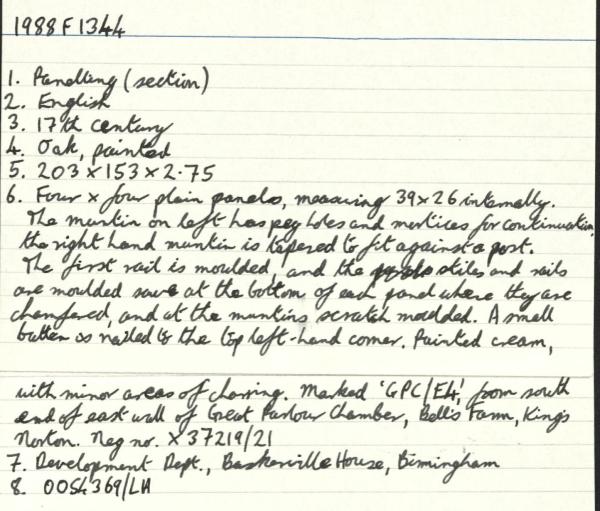 1988 F 1344
1. Panelling (section)
2. English
3. 17th century
4. Oak, painted
5. 203 x 153 x 2·75
6. Four x four plain panels, measuring 39 x 26 internally.
The muntin on left has peg holes and mortices for continuation,
the right hand muntin is tapered to fit against a post.
The first rail is moulded, and the stiles and rails
are moulded save at the bottom of each panel where they are
chamfered, and at the muntins scratch moulded. A small
batten is nailed to the top left-hand corner. Painted cream,
with minor areas of charring. Marked 'GPC/E4', from south
end of east wall of Great Parlour Chamber, Bells Farm, Kings
Norton. Neg no. X37219/21
7. Development Dept., Baskerville House, Birmingham
8. 0054369/LH